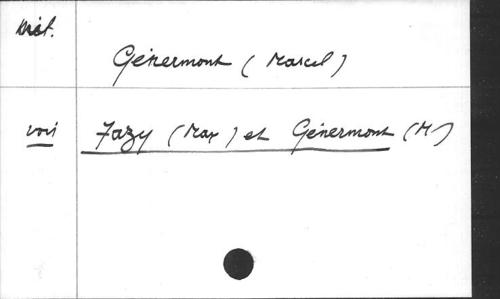 Hist.
Génermont (Marcel)
voir Fazy (Max) et Génermont (M.)